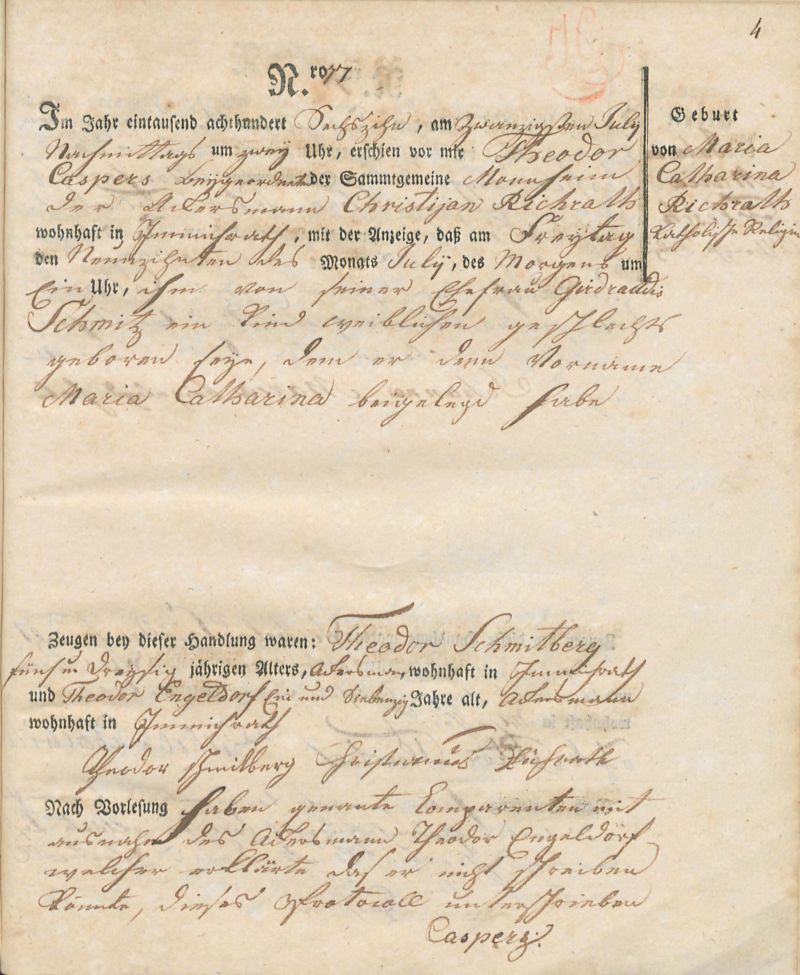 4
N.ro 77
Im Jahr eintausend achthundert Sechszehn, am zwanzigsten July
Nachmittags um zwey Uhr, erschien vor mir Theodor
Caspers Beygeordneter der Sammtgemeine Monnheim
der Ackersmann Christijan Richrath
wohnhaft in Immichrath, mit der Anzeige, daß am Freytag
den Neunzehnten des Monats July, des Morgens um
Ein Uhr, ihm von seiner Ehefrau Girdraudis
Schmitz ein Kind weiblichen geschlechts
geboren seye, dem er denn Vorname
Maria Catharina beigelegd habe
Geburt
von Maria
Catharina
Richrath
Katholische Religion
Zeugen bey dieser Handlung waren: Theodor Schmitberg
fünf u Dreysig jährigen Alters, Ackersman, wohnhaft in Immichrath
und Theodor Engeldorf Ein und Siebenzig Jahre alt, Ackersmann
wohnhaft in Immichrath
Theodor schmitberg Christianus Richrath
Nach Vorlesung haben genante Comparenten mit
ausnahm des Ackersmann Theodor Engeldorf
welcher erklärte das er nicht schreiben
könnte, dieses Protocoll unterschrieben
Caspers.